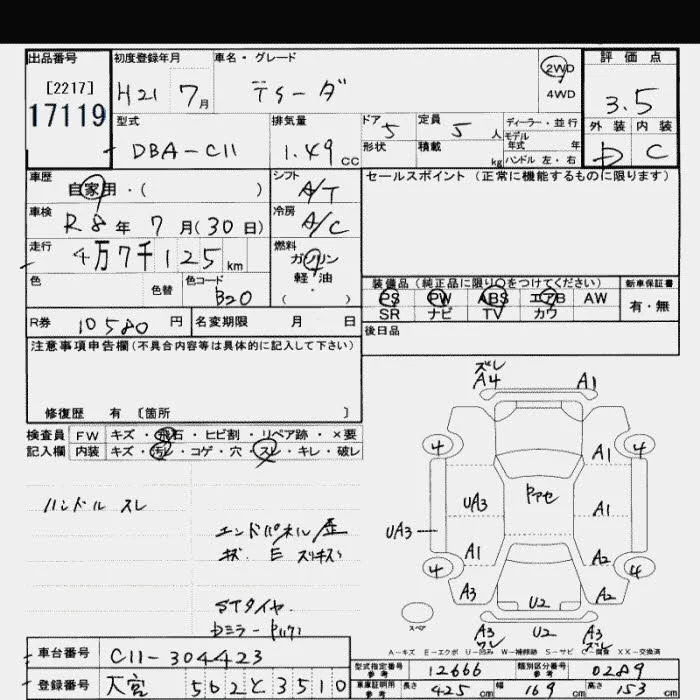 出品番号 初度登録年月 車名・グレード 2WD 評価点
[2217] H21 7月 ティーダ 4WD 3.5
17119 型式 排気量 ドア 定員 ディーラー・並行 外装 内装
DBA-C11 1.49cc 5 5人 モデル年式 年 D C
形状 積載 kg ハンドル 左・右
車歴 自家用・( ) シフト A/T セールスポイント (正常に機能するものに限ります)
車検 R8年 7月(30日) 冷房 A/C
走行 4万7千125km 燃料 ガソリン
軽・油
( )
色 色替 色コード B20 装備品(純正品に限り○をつけてください) 新車保証書
PS PW ABS エアB AW 有・無
SR ナビ TV カワ
R券 10580円 名変期限 月 日 後日品
注意事項申告欄(不具合内容等は具体的に記入して下さい)
修復歴 有 〔箇所 〕
検査員 FW キズ・飛石・ヒビ割・リペア跡・×要
記入欄 内装 キズ・汚れ・コゲ・穴・スレ・キレ・破レ
ハンドル スレ
エンドパネル/歪
キズ. E スリキズ
STタイヤ.
ズレ
A4 A1
4 4
A1
UA3 A1
UA3
A1 A2
4 4
A3 U2 A2
スペア
A3 U2 A3
A-キズ E-エクボ U-凹み W-補修跡 S-サビ XX-交換済
車台番号 C11-304423
型式指定番号 12666 類別区分番号 0289
登録番号 大宮 502 と 3510
車庫証明用参考 長さ 425cm 幅 169cm 高さ 153cm